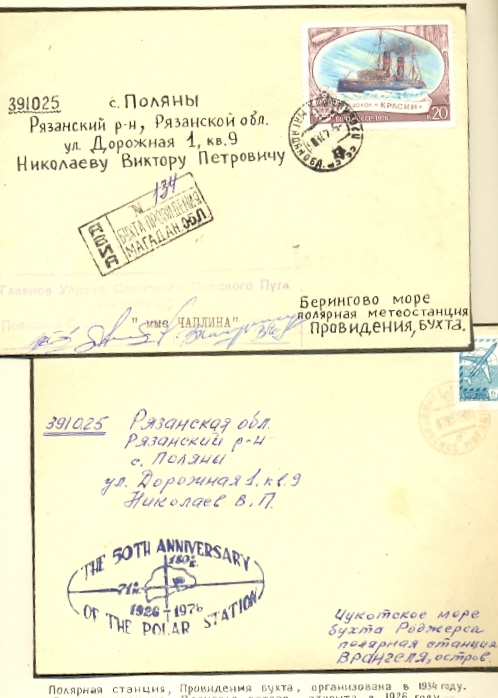 ЛЕДОКОЛ «КРАСИН»
ПОЧТА СССР 1976 К20
391025 с. Поляны
Рязанский р-н, Рязанской обл.
ул. Дорожная 1, кв.9
Николаеву Виктору Петровичу
АВИА
N 134
БУХТА ПРОВИДЕНИЯ
МАГАДАН.ОБЛ.
Главное Управ. Северного Морского Пути
Полярная
"мыс ЧАПЛИНА"
Берингово море
полярная метеостанция
Провидения, бухта.
391025 Рязанская обл.
Рязанский р-н
с. Поляны
ул. Дорожная 1, кв.9
Николаев В.П.
THE 50TH ANNIVERSARY
180°
71°
1926-1976
OF THE POLAR STATION
Чукотское море
бухта Роджерса
полярная станция
Врангеля, остров.
Полярная станция, Провидения бухта, организована в 1934 году.
открыта в 1926 году